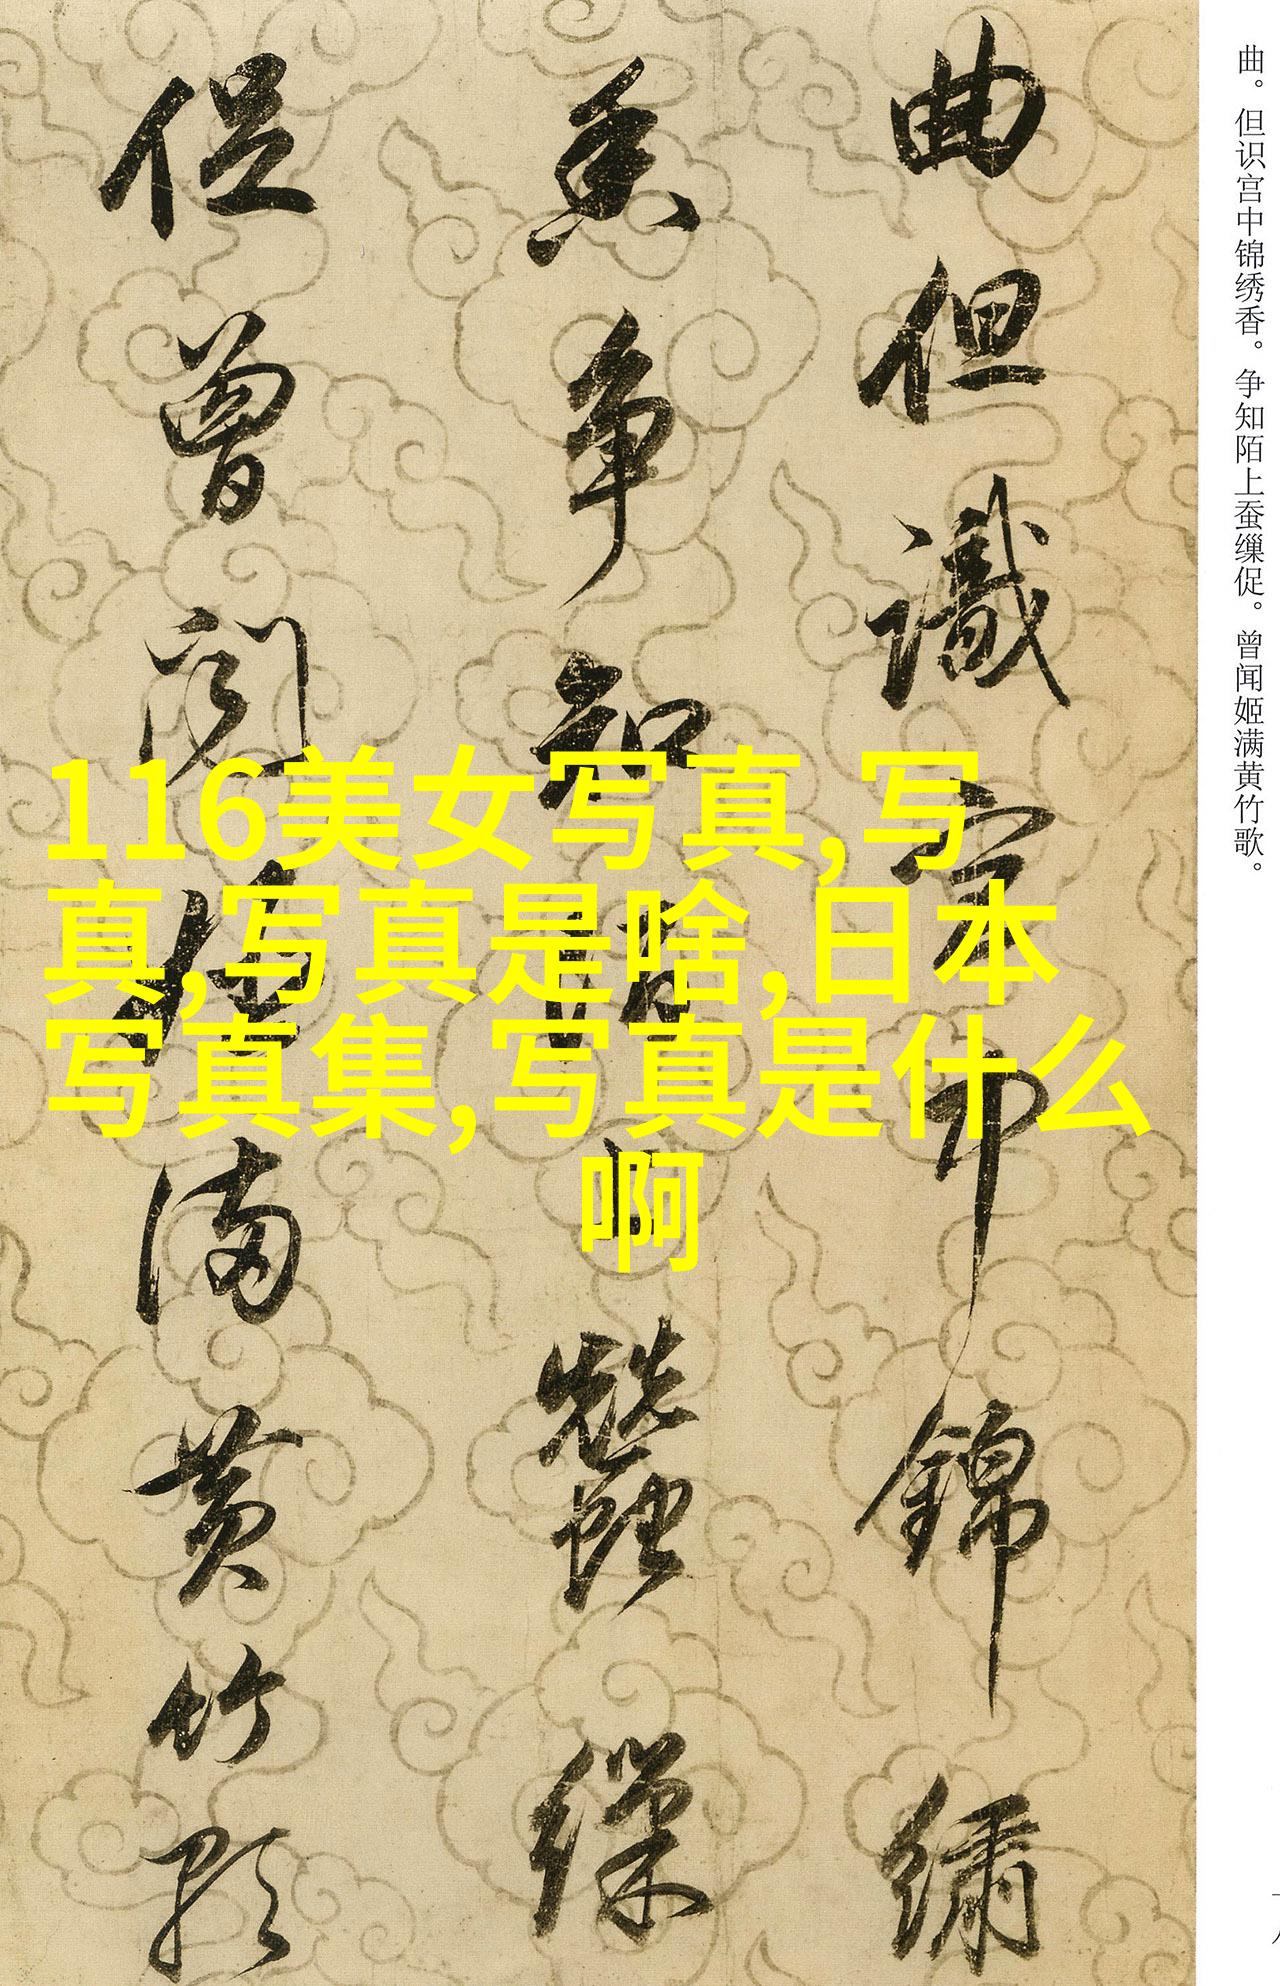 曲。但识宫中锦绣香。争知陌上蚕缫促。曾闻姬满黄竹歌。
曲但識宮中錦繡
香爭知陌上蠶繅
促曾聞姬滿黃竹歌
116美女写真,写
真,写真是啥,日本
写真集,写真是什么
啊